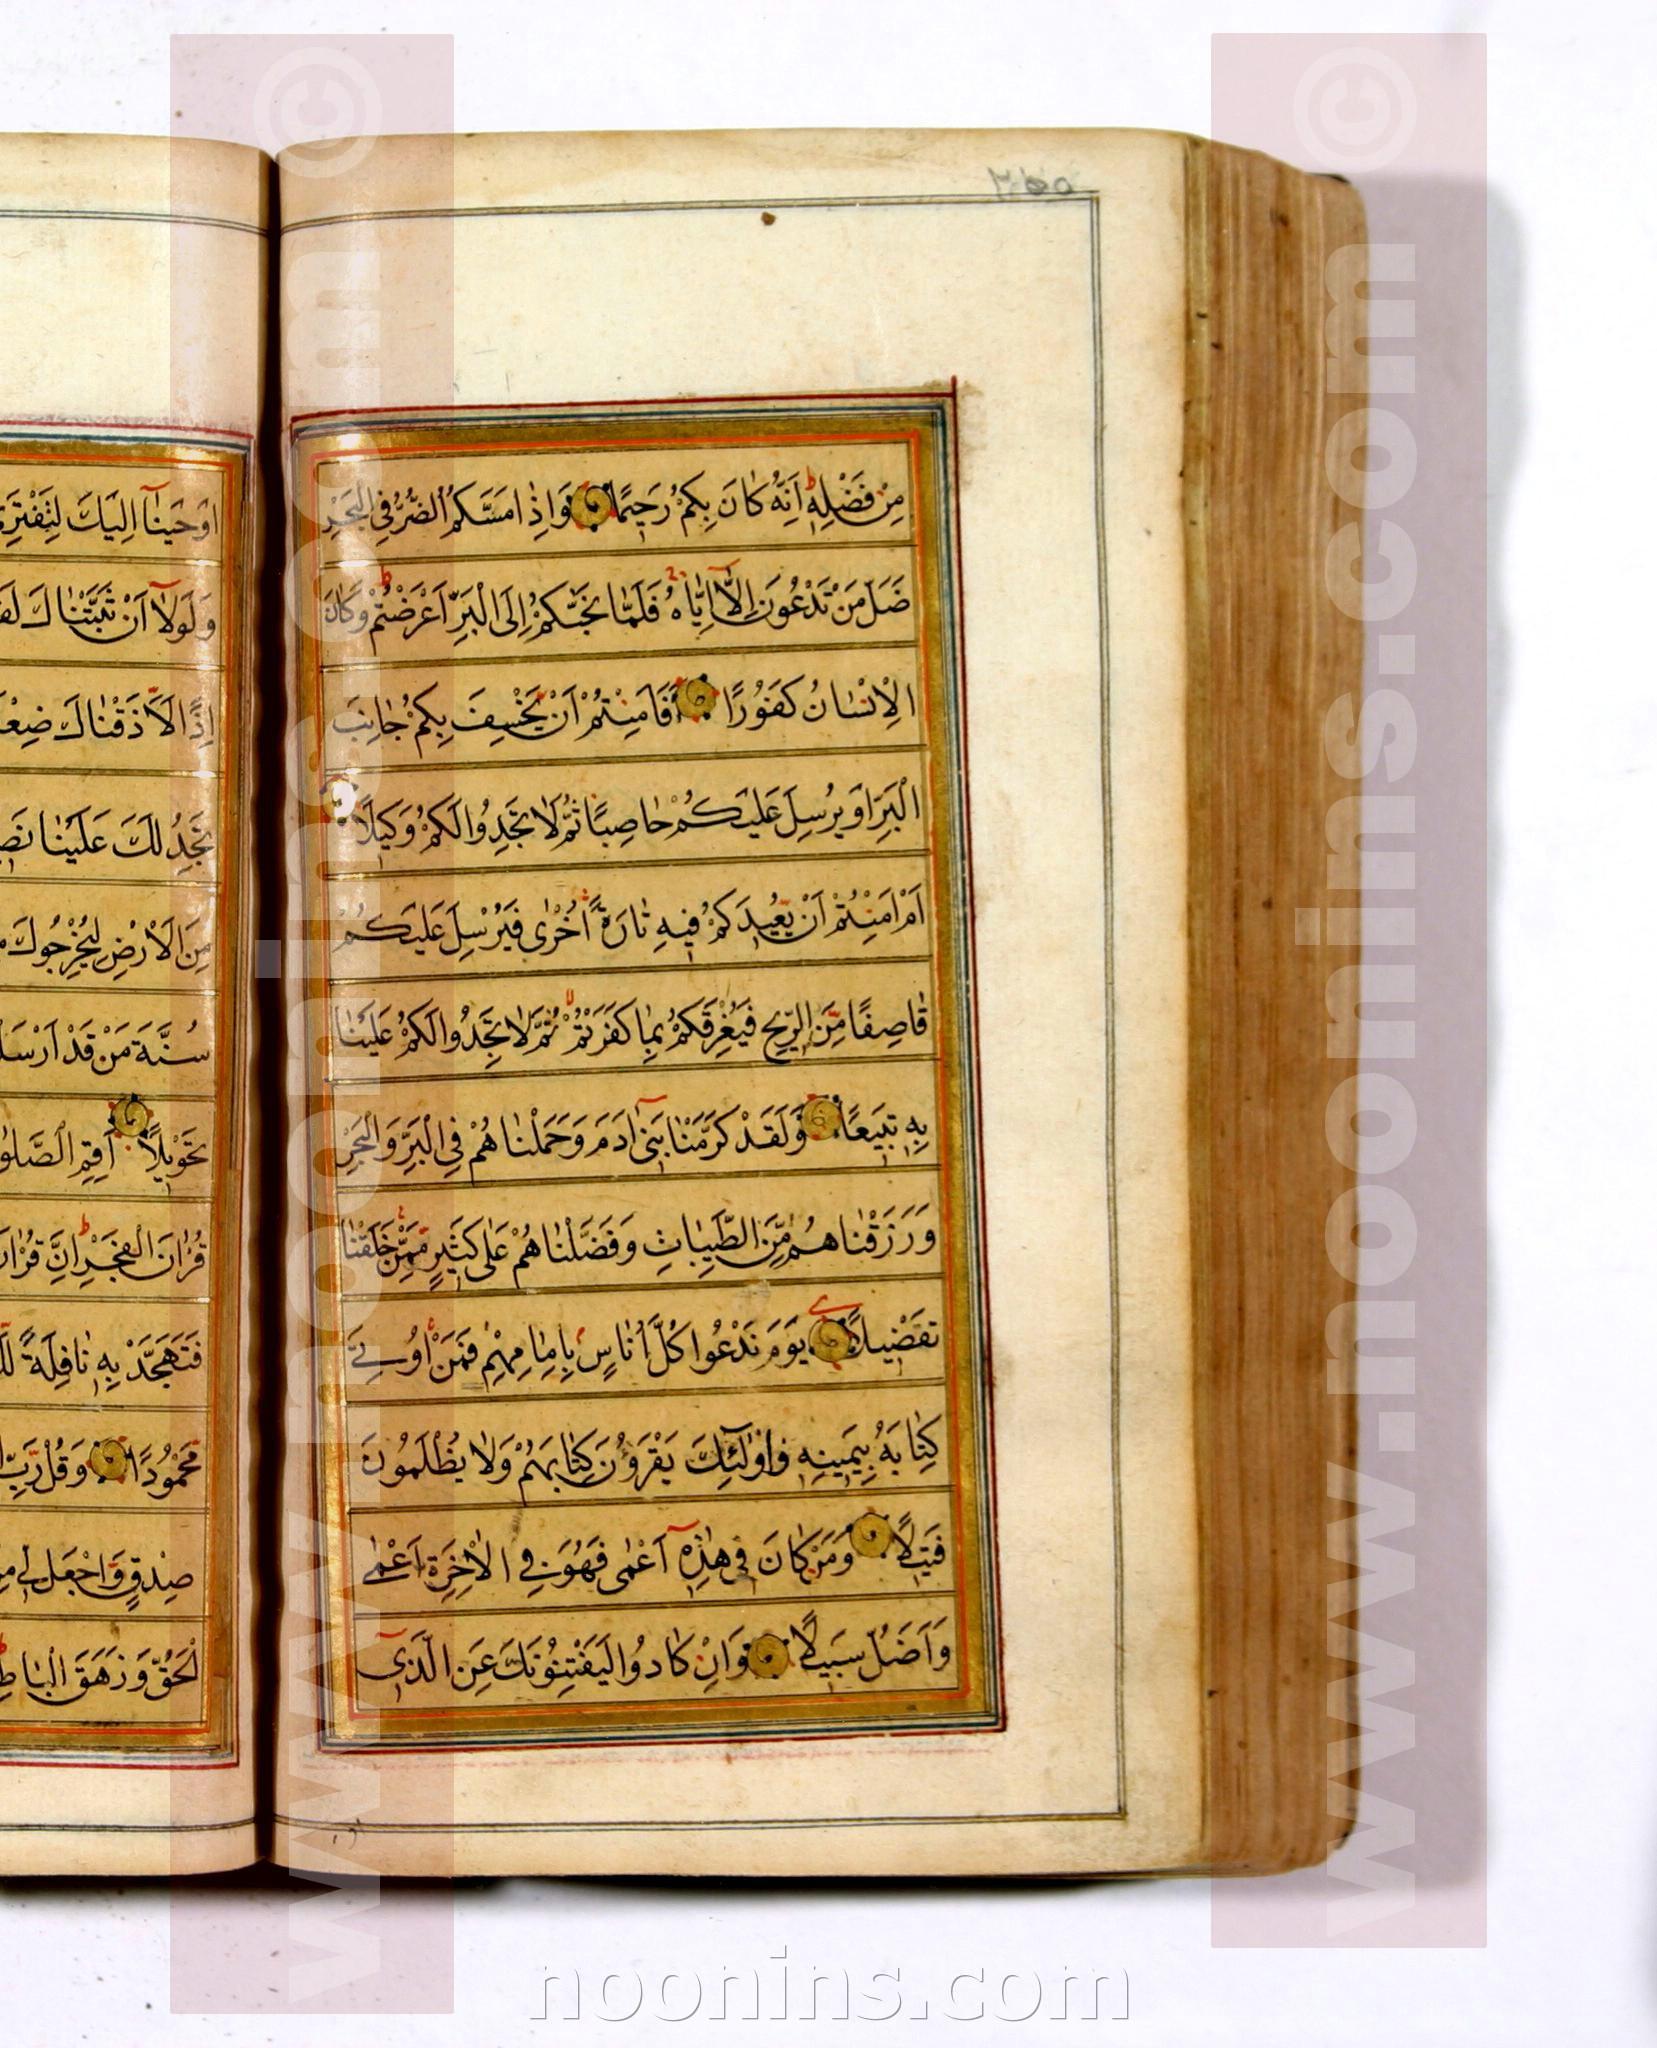 ۳۵۵
مِنْ فَضْلِهِ اِنَّهُ كَانَ بِكُمْ رَحِيمًا وَاِذَا مَسَّكُمُ الضُّرُّ فِي الْبَحْرِ
ضَلَّ مَنْ تَدْعُونَ اِلَّا اِيَّاهُ فَلَمَّا نَجَّىٰكُمْ اِلَى الْبَرِّ اَعْرَضْتُمْ وَكَانَ
الْاِنْسَانُ كَفُورًا اَفَاَمِنْتُمْ اَنْ يَخْسِفَ بِكُمْ جَانِبَ
الْبَرِّ اَوْ يُرْسِلَ عَلَيْكُمْ حَاصِبًا ثُمَّ لَا تَجِدُوا لَكُمْ وَكِيلًا
اَمْ اَمِنْتُمْ اَنْ يُعِيدَكُمْ فِيهِ تَارَةً اُخْرٰى فَيُرْسِلَ عَلَيْكُمْ
قَاصِفًا مِنَ الرِّيحِ فَيُغْرِقَكُمْ بِمَا كَفَرْتُمْ ثُمَّ لَا تَجِدُوا لَكُمْ عَلَيْنَا
بِهِ تَبِيعًا وَلَقَدْ كَرَّمْنَا بَنِي اٰدَمَ وَحَمَلْنَاهُمْ فِي الْبَرِّ وَالْبَحْرِ
وَرَزَقْنَاهُمْ مِنَ الطَّيِّبَاتِ وَفَضَّلْنَاهُمْ عَلٰى كَثِيرٍ مِمَّنْ خَلَقْنَا
تَفْضِيلًا يَوْمَ نَدْعُوا كُلَّ اُنَاسٍ بِاِمَامِهِمْ فَمَنْ اُوتِيَ
كِتَابَهُ بِيَمِينِهِ فَاُولٰئِكَ يَقْرَؤُنَ كِتَابَهُمْ وَلَا يُظْلَمُونَ
فَتِيلًا وَمَنْ كَانَ فِي هٰذِهِ اَعْمٰى فَهُوَ فِي الْاٰخِرَةِ اَعْمٰى
وَاَضَلُّ سَبِيلًا وَاِنْ كَادُوا لَيَفْتِنُونَكَ عَنِ الَّذِي
اَوْحَيْنَا اِلَيْكَ لِتَفْتَرِيَ
وَلَوْلَا اَنْ ثَبَّتْنَاكَ
اِذًا لَاَذَقْنَاكَ ضِعْفَ
تَجِدُ لَكَ عَلَيْنَا
مِنَ الْاَرْضِ لِيُخْرِجُوكَ
سُنَّةَ مَنْ قَدْ اَرْسَلْنَا
تَحْوِيلًا اَقِمِ الصَّلٰوةَ
قُرْاٰنَ الْفَجْرِ اِنَّ قُرْاٰنَ
فَتَهَجَّدْ بِهِ نَافِلَةً لَكَ
مَحْمُودًا وَقُلْ رَبِّ
صِدْقٍ وَاجْعَلْ لِي مِنْ
الْحَقُّ وَزَهَقَ الْبَاطِلُ
www.noonins.com ©
www.noonins.com ©
noonins.com